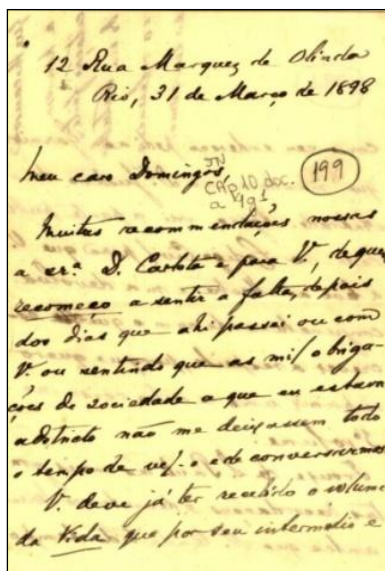 12 Rua Marquez de Olinda
Rio, 31 de Março de 1898
Meu caro Domingos,
JN
Cap 10 doc.
199
a 191
Muitas recommendações nossas
a sr.ª D. Carlota e para V., de quem
recomeço a sentir a falta, depois
dos dias que ahi passei ou com
V. ou sentindo que as mil obriga-
ções de sociedade a que eu estava
adstricto não me deixassem todo
o tempo de vel-o e de conversarmos
V. deve já ter recebido o volume
da Vida que por seu intermedio e